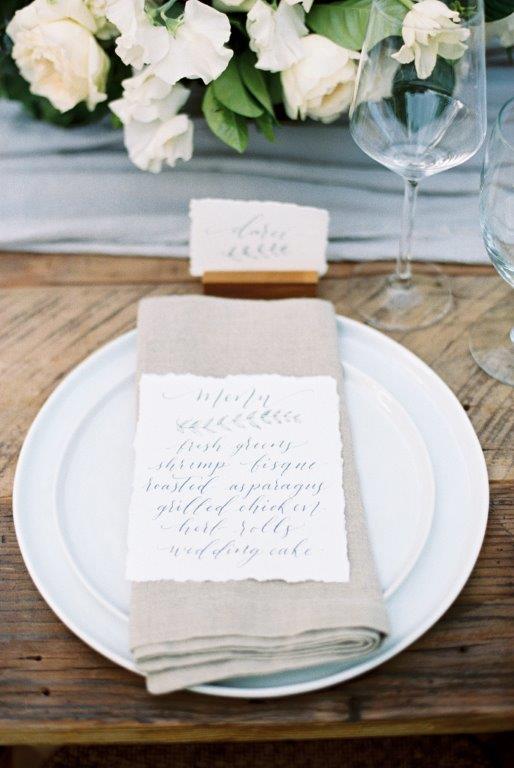 menu
fresh greens
shrimp bisque
roasted asparagus
grilled chicken
herb rolls
wedding cake